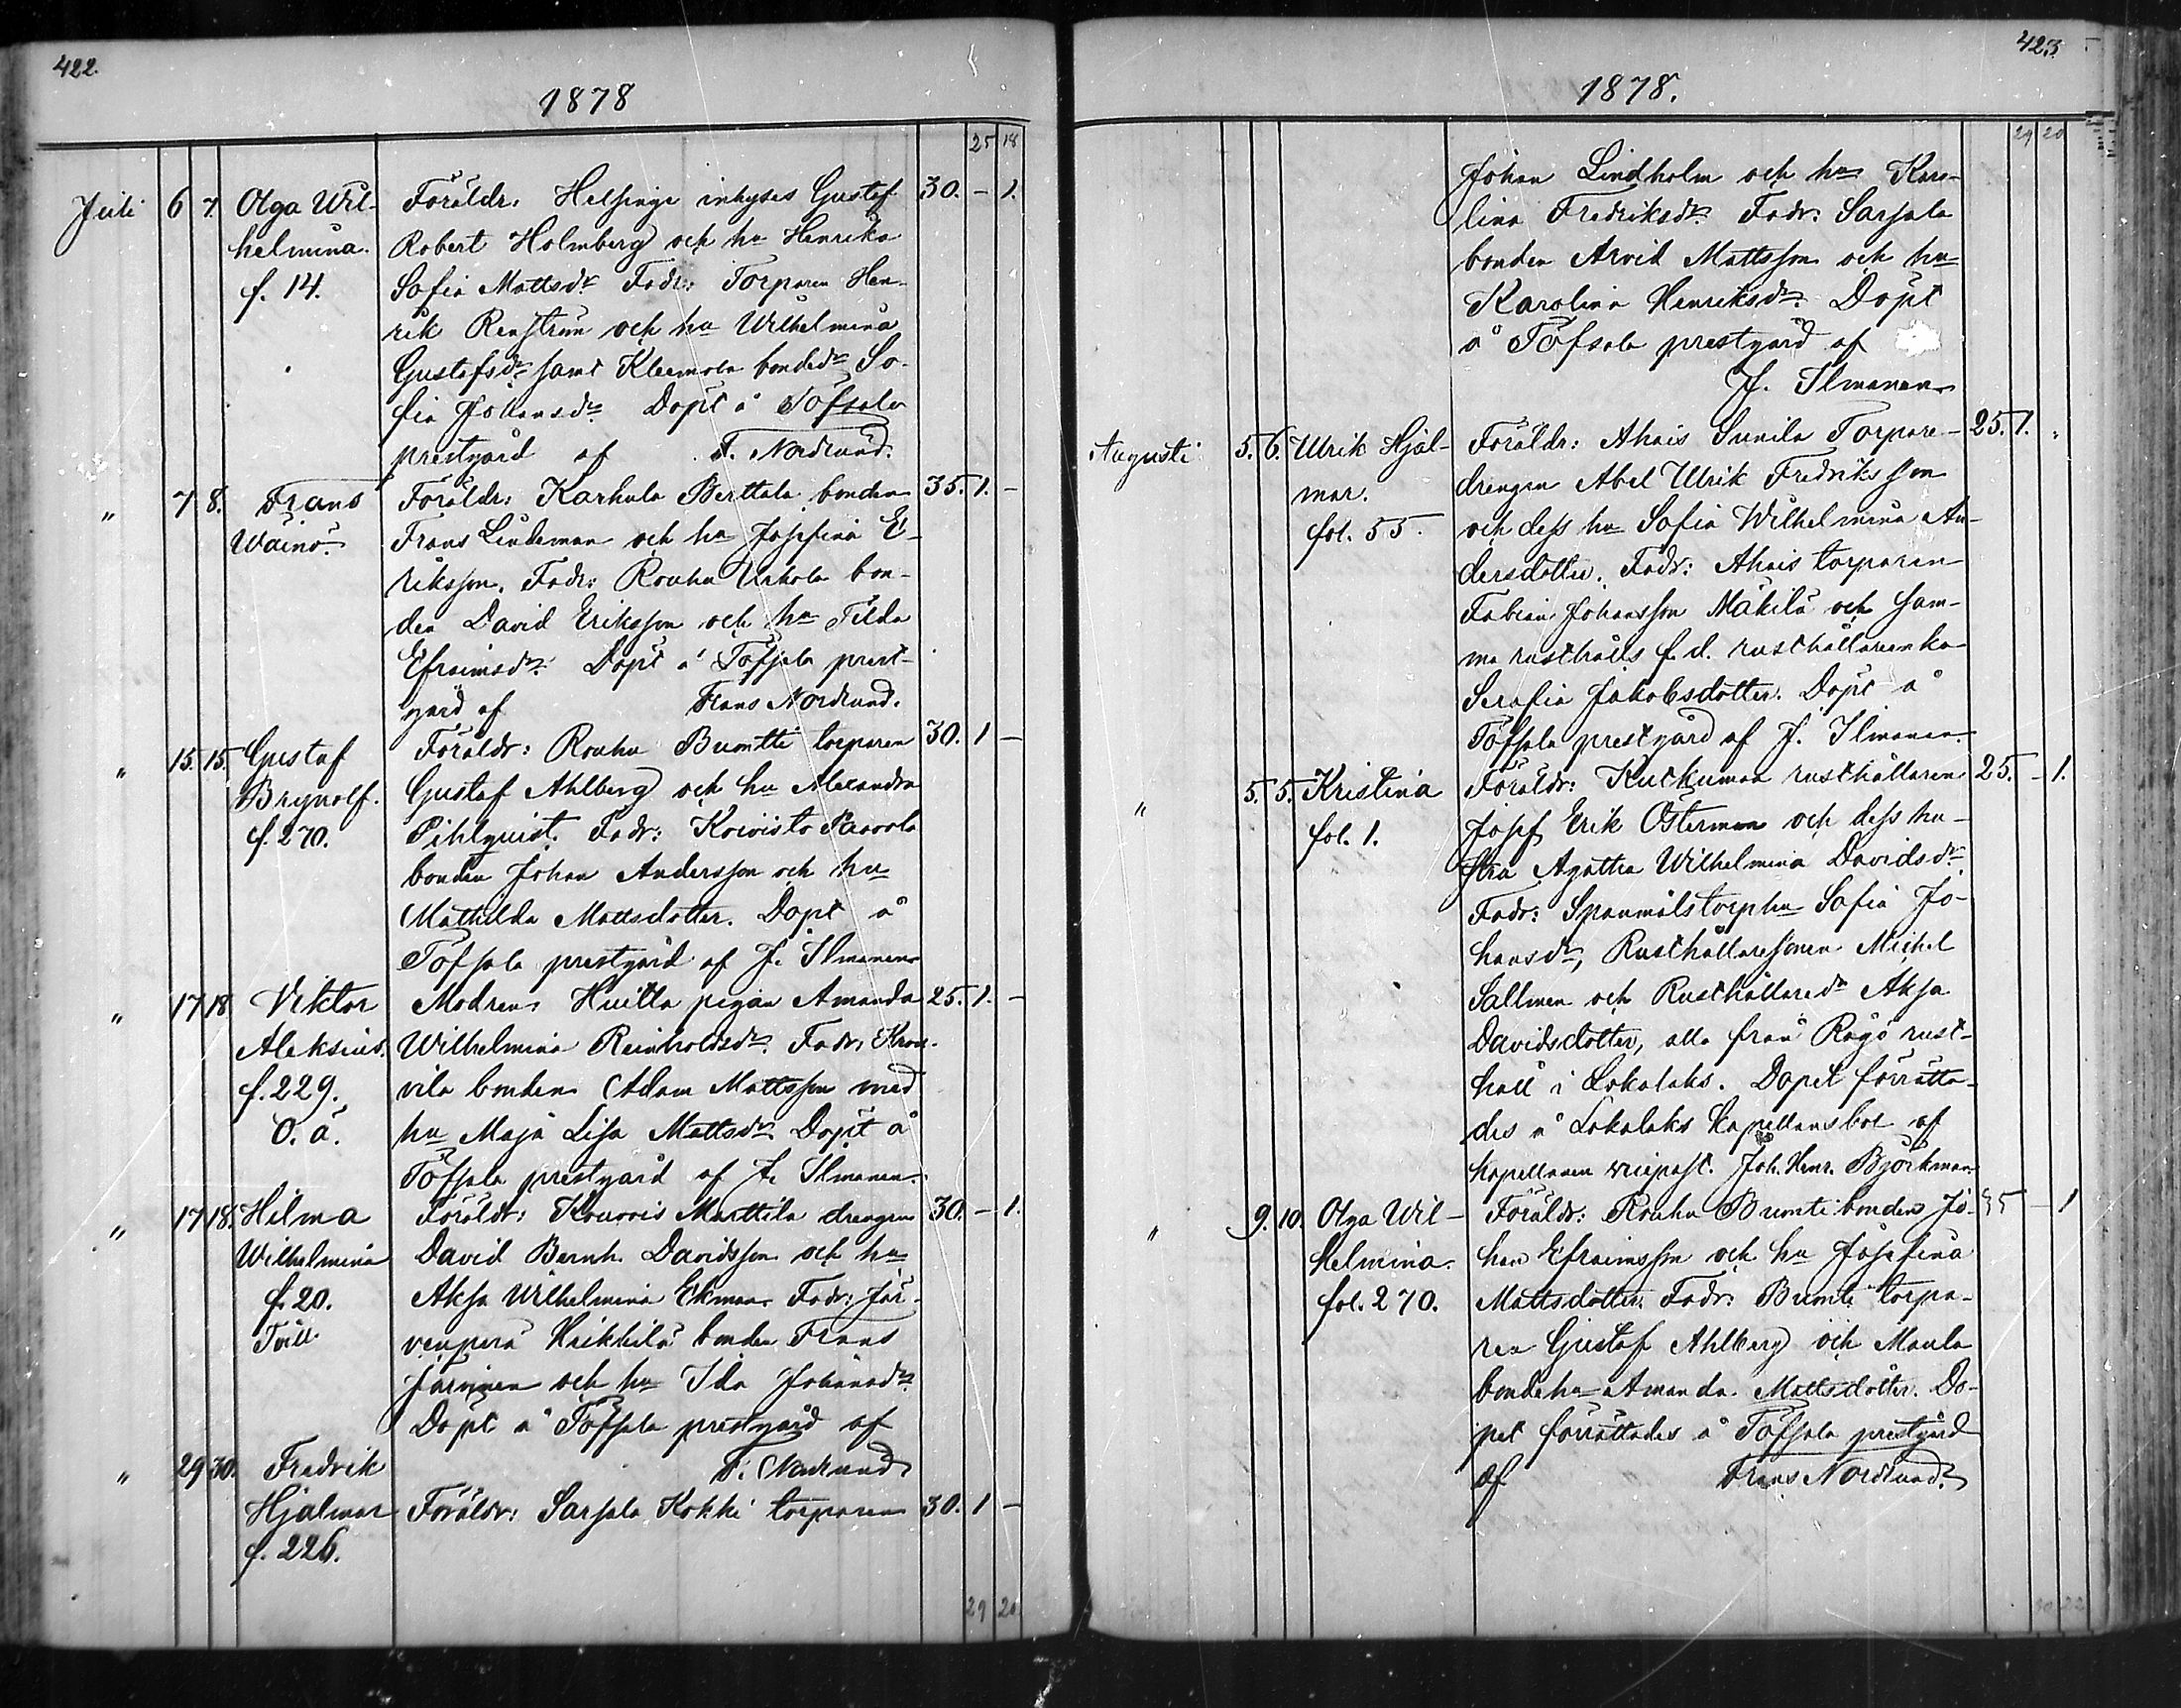 422.
1878
25 18
Juli 6 7. Olga Wil- Föräldr: Helsinge inhyses Gustaf 30. - 1.
helmina. Robert Holmberg och hu Henrika
f. 14. Sofia Mattsdr Fadr: Torparen Hen-
rik Renström och hu Wilhelmina
Gustafsdr samt Kleemola bondedr So-
fia Johansdr Döpt å Töfsala
prestgård af F. Nordlund.
" 7 8. Frans Föräldr: Karhula Berttala bonden 35. 1. -
Wäinö. Frans Lindeman och hu Josefina E-
riksson. Fadr: Rouhu Uckola bon-
den David Eriksson och hu Tilda
Efraimsdr. Döpt å Töfsala prest-
gård af Frans Nordlund.
" 15. 15. Gustaf Föräldr: Rouhu Buntti torparen 30. 1 -
Brynolf. Gustaf Ahlberg och hu Alexandra
f. 270. Pihlquist. Fadr: Koivisto Paavola
bonden Johan Andersson och hu
Mathilda Mattsdotter. Döpt å
Töfsala prestgård af J. Ilmanen
" 17 18 Viktor Modren: Huitta pigan Amanda 25. 1. -
Aleksius. Wilhelmina Reinholdsdr. Fadr: Krou-
f. 229. vila bonden Adam Mattsson med
O. ä. hu Maja Lisa Mattsdr Döpt å
Töfsala prestgård af J. Ilmanen.
" 17 18. Hilma Föräldr: Kouvois Marttila drengen 30. - 1.
Wilhelmina David Bernh. Davidsson och hu
f. 20. Aksa Wilhelmina Ekman Fadr: Jär-
Tvill. venperä Heikkilä bonden Frans
Järvinen och hu Ida Johansdr.
Döpt å Töfsala prestgård af
" 29 30. Fredrik F. Nordlund
Hjalmar Föräldr: Sarsala Kokki torparen 30. 1 -
f. 226.
29 20
423.
1878.
29 20
Johan Lindholm och hu Karo-
lina Fredriksdr. Fadr: Sarsala
bonden Arvid Mattsson och hu
Karolina Henriksdr. Döpt
å Töfsala prestgård af
J. Ilmanen
Augusti 5. 6. Ulrik Hjal- Föräldr: Ahais Sunila Torpare- 25. 1. "
mar. drengen Abel Ulrik Fredriksson
fol. 55. och dess hu Sofia Wilhelmina An-
dersdotter. Fadr: Ahais torparen
Fabian Johansson Mäkilä och sam-
ma rusthålls f. d. rusthållareenka
Serafia Jakobsdotter. Döpt å
Töfsala prestgård af J. Ilmanen.
" 5. 5. Kristina Föräldr: Kutkumaa rusthållaren 25. - 1.
fol. 1. Josef Erik Österman och dess hu-
stru Agatha Wilhelmina Davidsdr
Fadr: Spanmåls torphu Sofia Jo-
hansdr, Rusthållaresonen Michel
Sallmen och Rusthållaredr Aksa
Davidsdotter, alla från Rågö rust-
håll i Lokalaks. Dopet förrätta-
des å Lokalaks kapellansbol af
kapellanen vicepast. Joh. Henr. Björkman
" 9. 10. Olga Wil- Föräldr: Rouhu Bunti bonden Jo- 35 - 1
helmina. han Efraimsson och hu Josefina
fol. 270. Mattsdotter. Fadr: Bunti torpa-
ren Gustaf Ahlberg och Maula
bondehu Amanda Mattsdotter. Do-
pet förrättades å Töfsala prestgård
af Frans Nordlund.
30 22